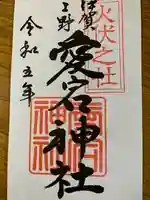 火伏之社
伊賀
上野
愛宕神社
令和五年